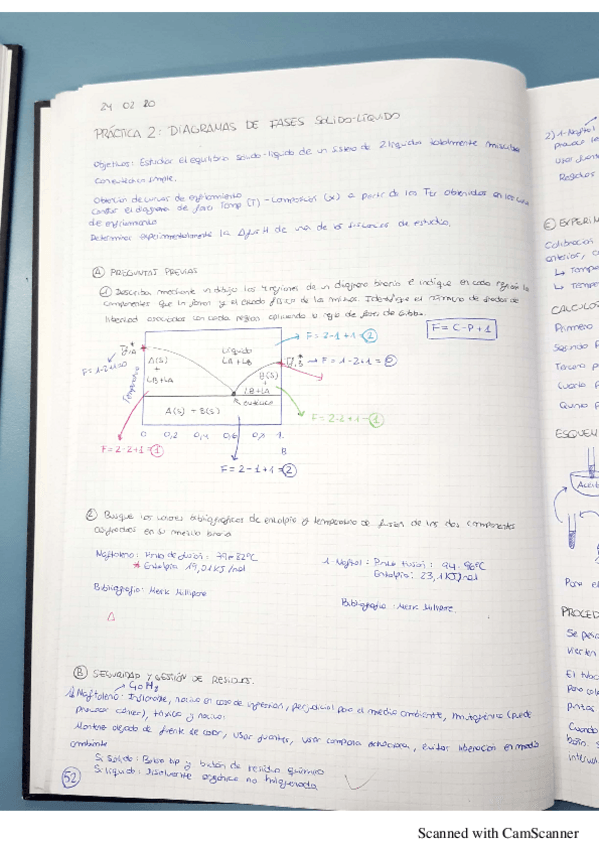 24 02 20
PRÁCTICA 2: DIAGRAMAS DE FASES SOLIDO-LÍQUIDO
Objetivos: Estudiar el equilibrio solido-liquido de un sistema de 2 liquidos totalmente miscibles
con eutectico simple.
Obtención de curvas de enfriamiento
diagrama de fases Temp (T) - composición (x) a partir de los observados en las
de enfriamiento
Determinar experimentalmente la H de una de las sustancias de estudio.
A PREGUNTAS PREVIAS
1 Describa mediante un dibujo las 4 regiones de un diagrama binario e indique en cada región los
componentes que lo forman y el estado físico de los mismos. Identifique el número de grados de
libertad asociados con cada región aplicando la regla de fases de Gibbs.
F = C-P+1
F = 2-1+1 = 2
Líquido
LA + LB
F = 1-2+1 = 0
F = 1-2+1=0
A(s)
+
LB+LA
Temperatura
B(s)
+
LB+LA
eutéctico
A(s) - B(s)
F = 2-2+1 = 1
0 0,2 0,4 0,6 0,8 1.
B
F = 2-2+1 = 1
F = 2-1+1 = 2
2 Busque los valores bibliográficos de entalpía y temperatura de fusión de los dos componentes
en su medio
Naftaleno: Punto de fusión: 79-82ºC
* Entalpía 19,01 KJ/mol
Bibliografía: Merk Millipore
1-Naftol: Punto fusión: 94-96ºC
Entalpía: 23,1 KJ/mol
Bibliografía: Merk Millipore.
B SEGURIDAD Y GESTIÓN DE RESIDUOS.
1) Naftaleno: Inflamable, nocivo en caso de ingestión, perjudicial para el medio ambiente, mutagénico (puede
provocar cáncer), tóxico y nocivo.
Mantener alejado de fuente de calor, usar guantes, usar campana extractora, evitar liberación en medio
ambiente
Si solido: Bolsa zip y de residuo químico
Si liquido: Disolvente orgánico no halogenado
52
2) 1-Naftol
provocar
Usar
Residuos
C EXPERIM
Calibración
anterior, c
↳ Tempe
↳ Tempe
CALCULO
Primero
Segundo
Tercero p
Cuarto
Quinto p
ESQUEM
Aceit
Para el
PROCED
Se pesa
vierten
El tubo
para col
pintas
Cuando
baño. S
interval
Scanned with CamScanner